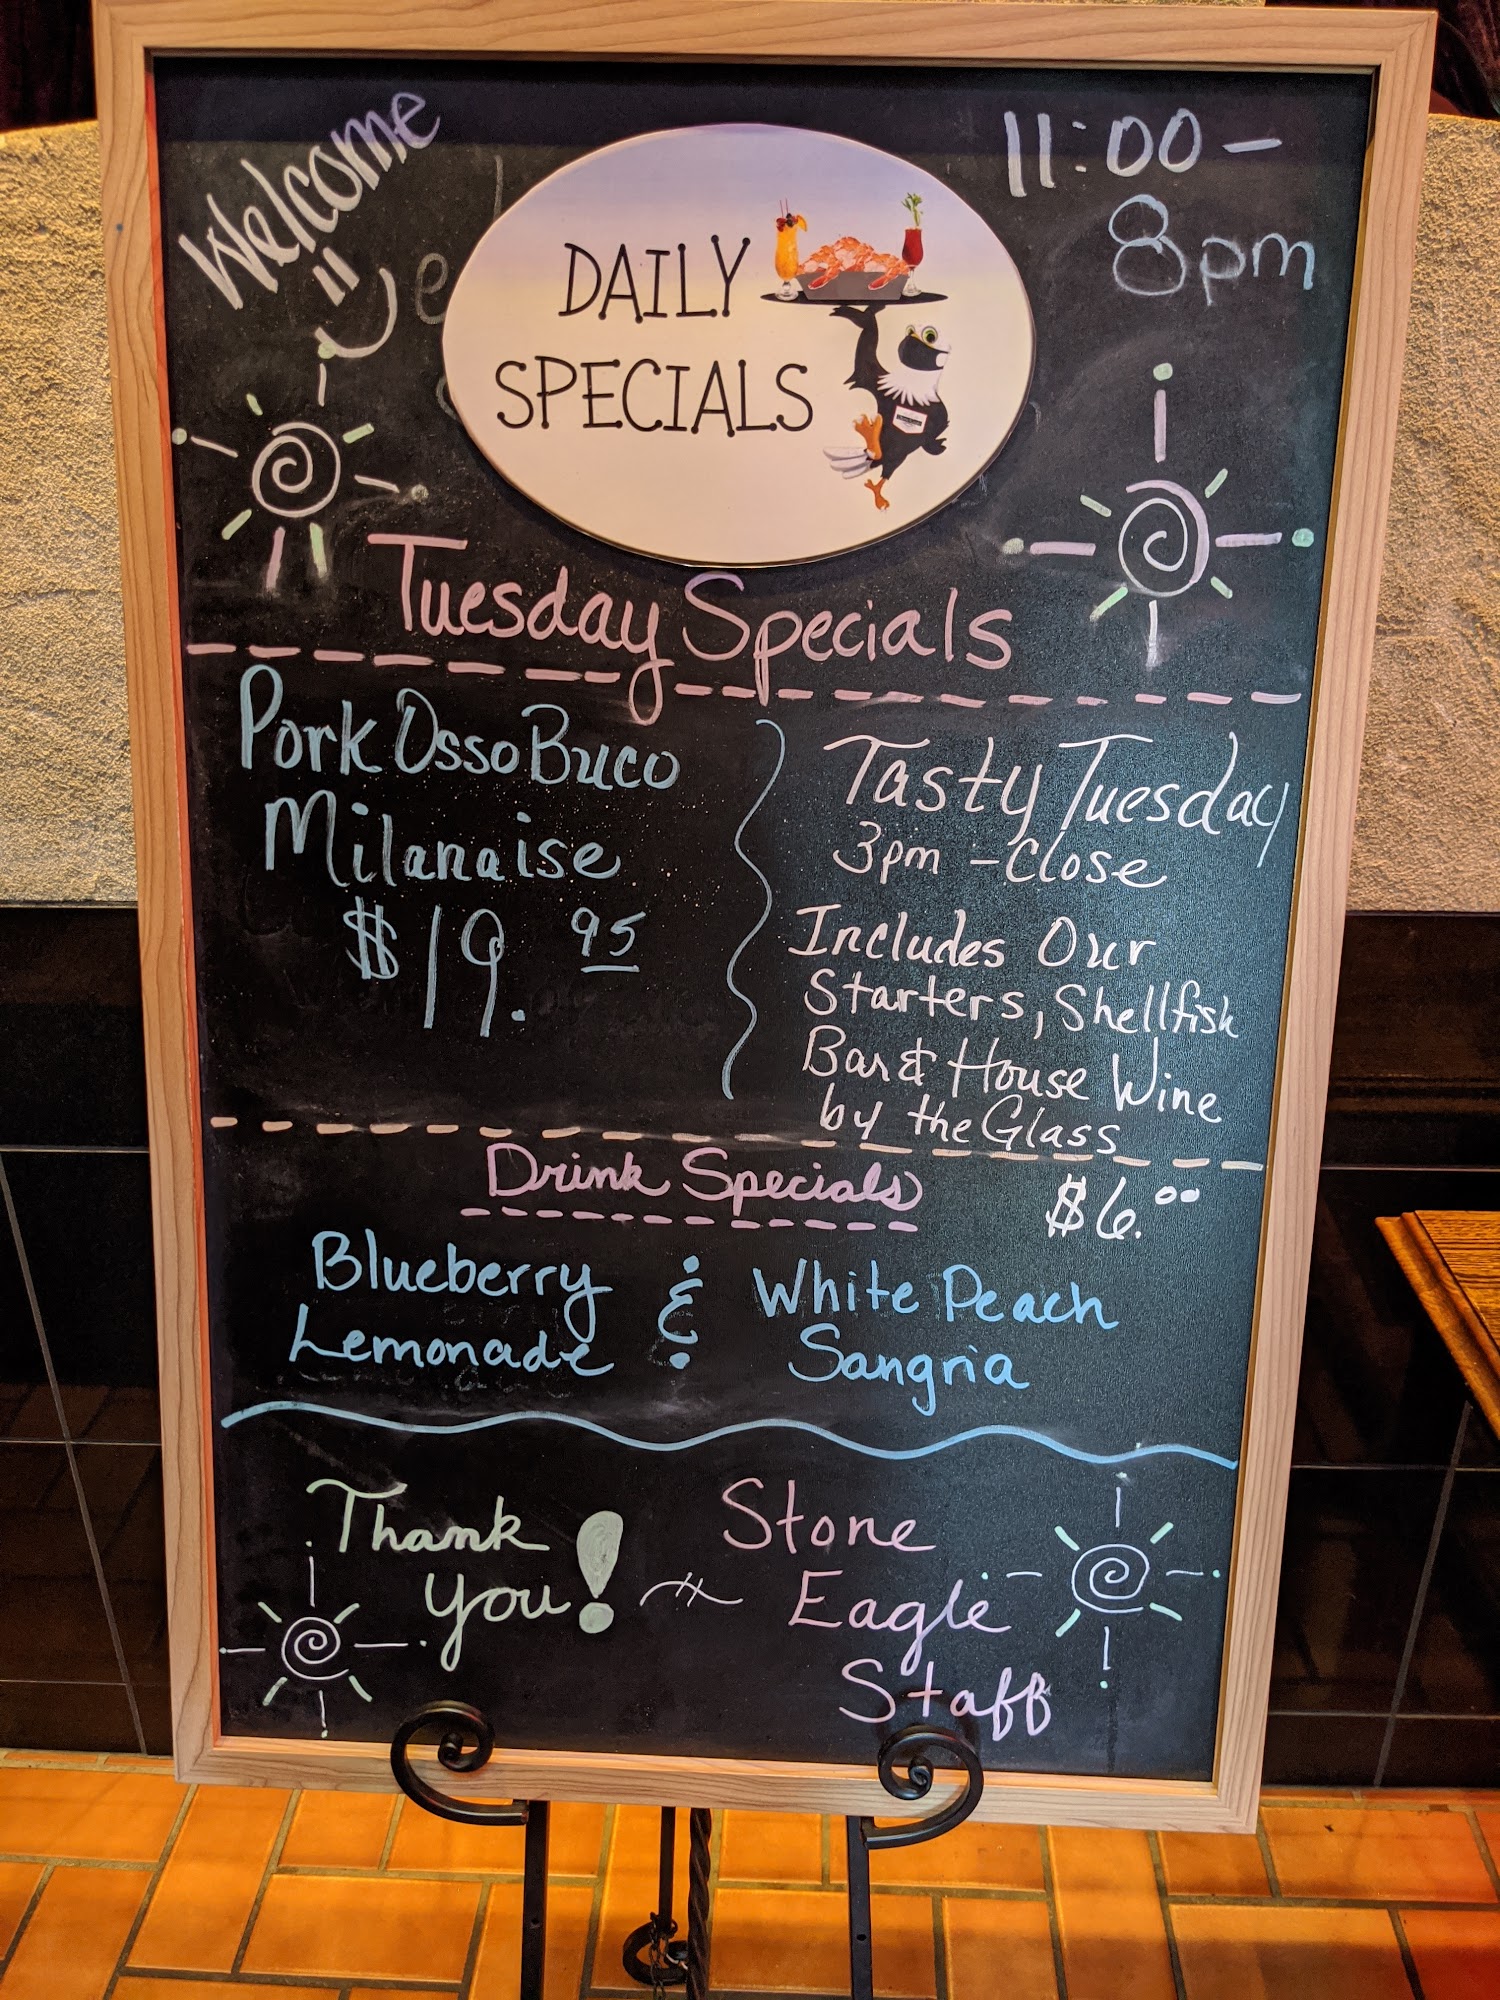 Welcome
11:00 -
8pm
DAILY
SPECIALS
Tuesday Specials
Pork Osso Buco
Milanaise
$19.95
Tasty Tuesday
3pm - Close
Includes Our
Starters, Shellfish
Bar & House Wine
by the Glass
Drink Specials
$6.00
Blueberry
Lemonade
&
White Peach
Sangria
Thank
you!
Stone
Eagle
Staff